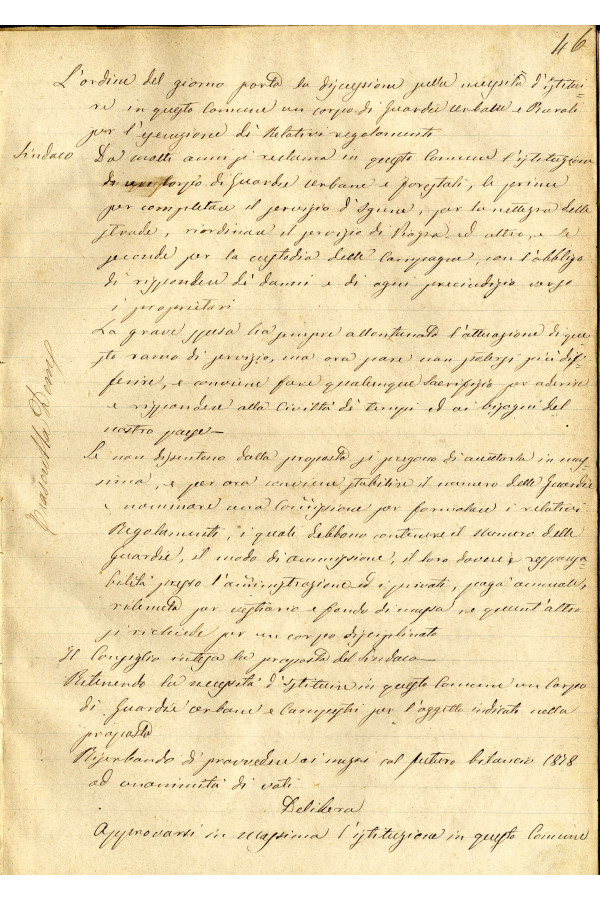 46
L'ordine del giorno porta la discussione sulla necessità d'istitui-
re in questo Comune un corpo di Guardie Urbane e Rurali
per l'esecuzione di Relativi regolamenti
Sindaco Da molti anni si reclama in questo Comune l'istituzione
di un corpo di Guardie Urbane e forestali, le prime
per completare il servizio d'Igiene, per la nettezza delle
strade, riordinare il servizio di Piazza ed altro, e le
seconde per la custodia delle Campagne, con l'obbligo
di rispondere di danni e di ogni precindizio verso
i proprietari
La grave spesa ha sempre allontanata l'attuazione di que
sto ramo di servizio, ma ora pare non potersi più dif-
ferire, e conviene fare qualunque Sacrifizio per aderire
e rispondere alla Civiltà di tempi ed ai bisogni del
nostro paese —
Se non dissentono dalla proposta si pregono di accettarla in mas
sima, e per ora conviene stabilire il numero delle Guardie
e nominare una Commissione per formolare i relativi
Regolamenti, i quale debbono contenere il Numero delle
Guardie, il modo di ammissione, il loro dovere e responsa
bilità presso l'amministrazione ed i privati, paga annuale,
ritenuta per vestiario e fondo di massa, e quant'altro
si richiede per un corpo disciplinato
Il Consiglio intesa la proposta del Sindaco —
Ritenendo la necessità d'istituire in questo Comune un Corpo
di Guardie Urbane e Campestri per l'oggetto indicati nella
proposta
Riserbando di provvedere ai mezzi col futuro bilancio 1878
ad unanimità di voti
Delibera
Approvarsi in massima l'istituzione in questo Comune